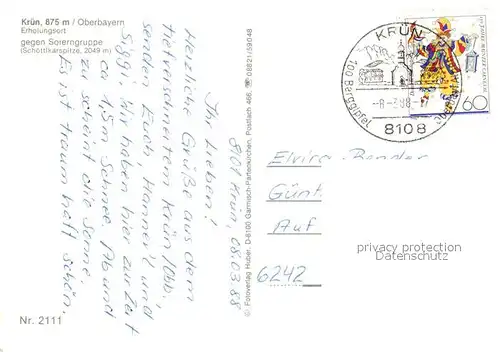 Krün, 875 m / Oberbayern
Erholungsort
gegen Soierngruppe
(Schöttlkarspitze, 2049 m)
8101 Krün, 08.03.88
Ihr Lieben!
Herzliche Grüße aus dem
tiefverschneitem Krün /Obb.
senden Euch Hanner'l und
Siggi. Wir haben hier zur Zeit
ca 1,5 m Schnee. Ab und
zu scheint die Sonne.
Es ist traumhaft schön.
© Fotoverlag Huber, D-8100 Garmisch-Partenkirchen, Postlach 466, ☎ 08821/59048
Nr. 2111
KRÜN
100 Berggipfel
8108
60
Elvira
Günt
Auf
6242
privacy protection
Datenschutz